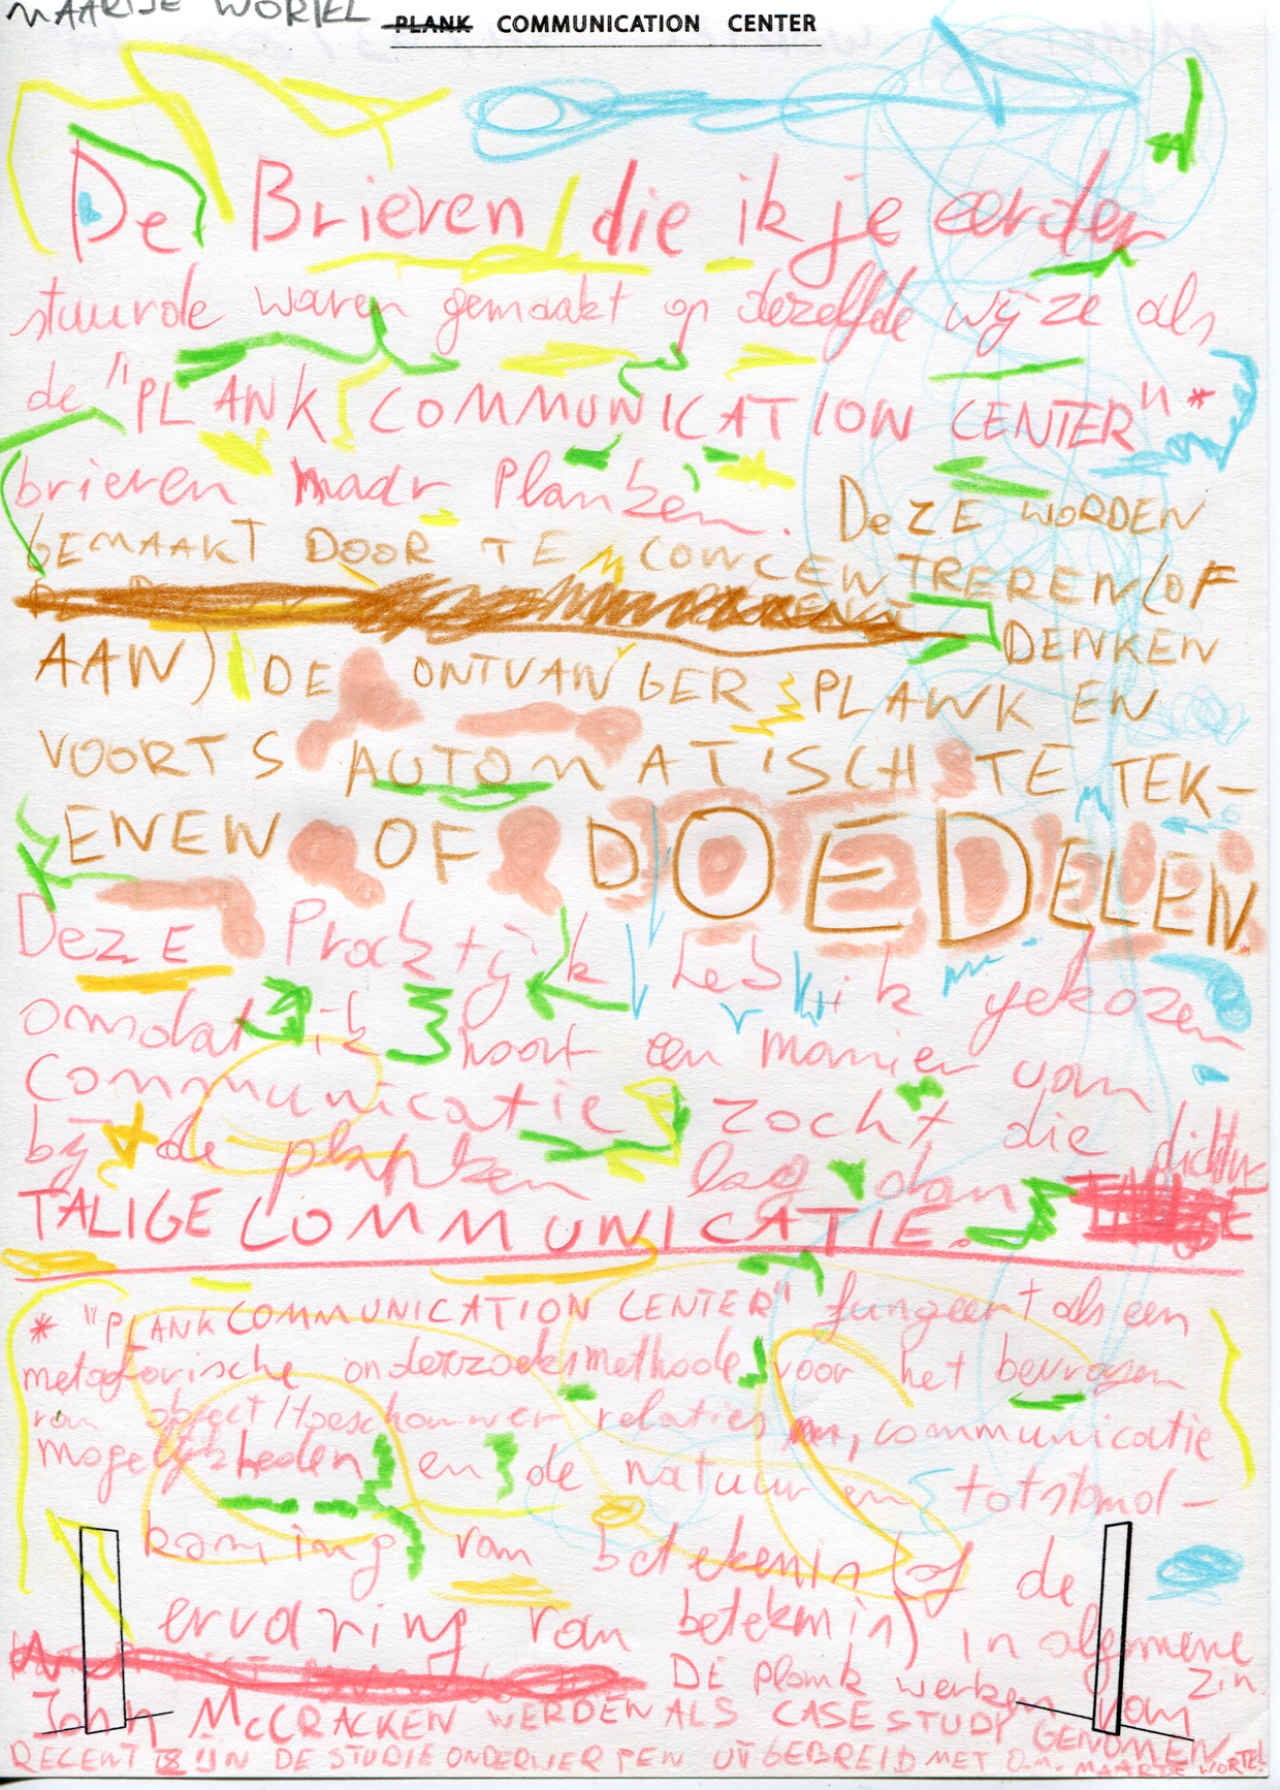 MAARTJE WORTEL
PLANK COMMUNICATION CENTER
De Brieven die ik je eerder
stuurde waren gemaakt op dezelfde wijze als
de "PLANK COMMUNICATION CENTER" *
brieven maar Planken. DeZE WORDEN
GEMAAKT DOOR TE CONCENTREREN (OF
DENKEN
AAN) DE ONTVANGER PLANK EN
VOORTS AUTOMATISCH TE TEK-
ENEN OF DOEDELEN
DezE Praktijk heb ik gekozen
omdat ik naar een manier van
Communicatie zocht die dichter
bij de planken lag dan
TALIGE COMMUNICATIE.
* "PLANK COMMUNICATION CENTER" fungeert als een
metaforische onderzoeksmethode voor het bevragen
van object/toeschouwer relaties, communicatie
mogelijkheden en de natuur en totstand-
koming van betekenis (of de
ervaring van betekenis) in algemene
zin.
DE Plank werken van
John McCRACKEN WERDEN ALS CASE STUDY GENOMEN.
RECENT ZIJN DE STUDIE ONDERWERPEN UITGEBREID MET O.A. MAARTJE WORTEL.